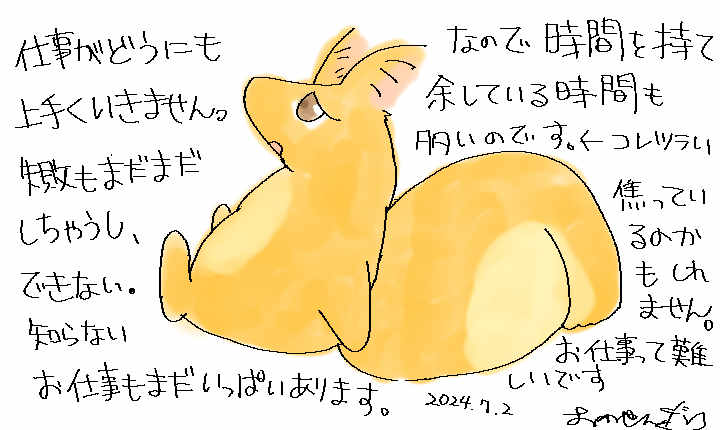 仕事がどうにも
上手くいきません。
失敗もまだまだ
しちゃうし、
できない。
知らない
お仕事もまだいっぱいあります。
なので時間を持て
余している時間も
多いのです。←コレツラい
焦ってい
るのか
もしれ
ません。
お仕事って難
しいです
2024.7.2